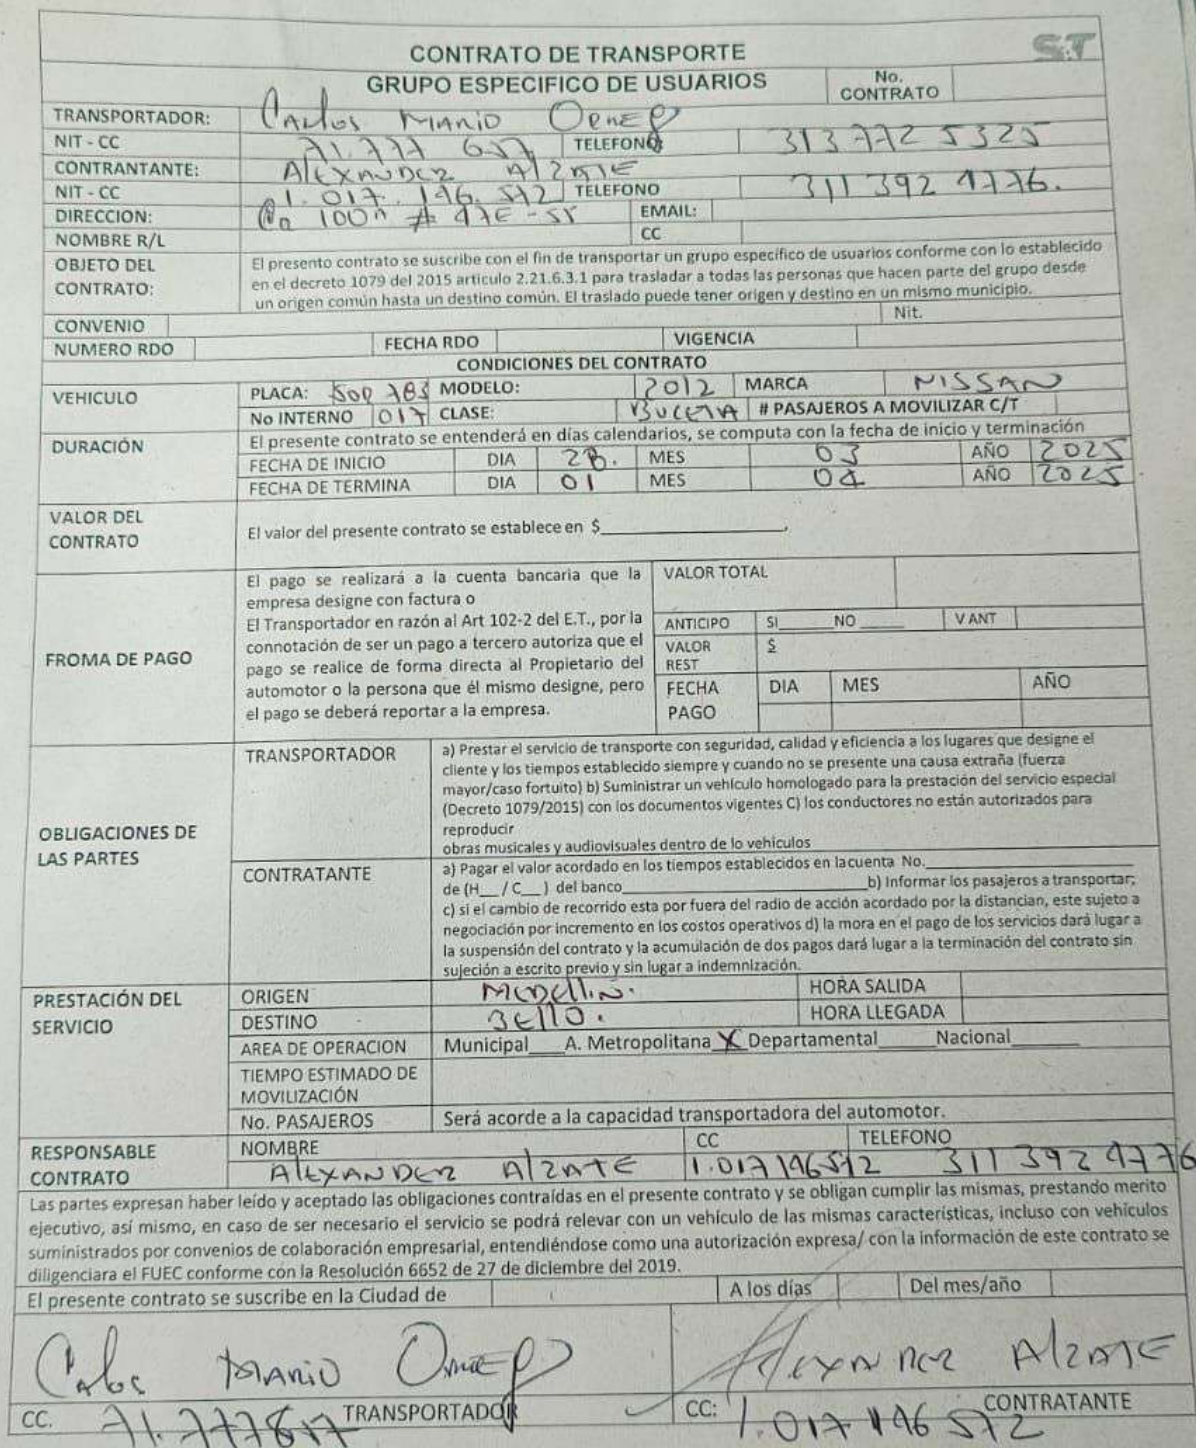 S&T
CONTRATO DE TRANSPORTE
GRUPO ESPECIFICO DE USUARIOS No. CONTRATO
TRANSPORTADOR: Carlos MARIO
NIT - CC TELEFONO 313 772 5325
CONTRANTANTE: AlExANDER AlzATE
NIT - CC 1.017.196.572 TELEFONO 311 392 4776.
DIRECCION: EMAIL:
NOMBRE R/L CC
OBJETO DEL CONTRATO: El presento contrato se suscribe con el fin de transportar un grupo específico de usuarios conforme con lo establecido
en el decreto 1079 del 2015 articulo 2.21.6.3.1 para trasladar a todas las personas que hacen parte del grupo desde
un origen común hasta un destino común. El traslado puede tener origen y destino en un mismo municipio.
CONVENIO Nit.
NUMERO RDO FECHA RDO VIGENCIA
CONDICIONES DEL CONTRATO
VEHICULO PLACA: MODELO: 2012 MARCA NISSAN
No INTERNO 017 CLASE: BUCETA # PASAJEROS A MOVILIZAR C/T
DURACIÓN El presente contrato se entenderá en días calendarios, se computa con la fecha de inicio y terminación
FECHA DE INICIO DIA 28. MES 03 AÑO 2025
FECHA DE TERMINA DIA 01 MES 04 AÑO 2025
VALOR DEL CONTRATO El valor del presente contrato se establece en $
FROMA DE PAGO
El pago se realizará a la cuenta bancaria que la
empresa designe con factura o
El Transportador en razón al Art 102-2 del E.T., por la
connotación de ser un pago a tercero autoriza que el
pago se realice de forma directa al Propietario del
automotor o la persona que él mismo designe, pero
el pago se deberá reportar a la empresa.
VALOR TOTAL
ANTICIPO SI____NO____ V ANT
VALOR REST $
FECHA PAGO DIA MES AÑO
OBLIGACIONES DE LAS PARTES
TRANSPORTADOR a) Prestar el servicio de transporte con seguridad, calidad y eficiencia a los lugares que designe el
cliente y los tiempos establecido siempre y cuando no se presente una causa extraña (fuerza
mayor/caso fortuito) b) Suministrar un vehículo homologado para la prestación del servicio especial
(Decreto 1079/2015) con los documentos vigentes C) los conductores no están autorizados para
reproducir
obras musicales y audiovisuales dentro de lo vehículos
CONTRATANTE a) Pagar el valor acordado en los tiempos establecidos en la cuenta No.
de (H__ / C__ ) del banco____ b) Informar los pasajeros a transportar;
c) si el cambio de recorrido esta por fuera del radio de acción acordado por la distancian, este sujeto a
negociación por incremento en los costos operativos d) la mora en el pago de los servicios dará lugar a
la suspensión del contrato y la acumulación de dos pagos dará lugar a la terminación del contrato sin
sujeción a escrito previo y sin lugar a indemnización.
PRESTACIÓN DEL SERVICIO
ORIGEN MEDELLIN. HORA SALIDA
DESTINO BEllO. HORA LLEGADA
AREA DE OPERACION Municipal___A. Metropolitana X Departamental____Nacional____
TIEMPO ESTIMADO DE MOVILIZACIÓN
No. PASAJEROS Será acorde a la capacidad transportadora del automotor.
RESPONSABLE CONTRATO NOMBRE CC TELEFONO
AlEXANDER AlzATE 1.017196572 311 392 4776
Las partes expresan haber leído y aceptado las obligaciones contraídas en el presente contrato y se obligan cumplir las mismas, prestando merito
ejecutivo, así mismo, en caso de ser necesario el servicio se podrá relevar con un vehículo de las mismas características, incluso con vehículos
suministrados por convenios de colaboración empresarial, entendiéndose como una autorización expresa/ con la información de este contrato se
diligenciara el FUEC conforme con la Resolución 6652 de 27 de diciembre del 2019.
El presente contrato se suscribe en la Ciudad de A los días Del mes/año
Carlos MARIO AlEXANDER AlzATE
CC. TRANSPORTADOR CC: 1.017 196 572 CONTRATANTE